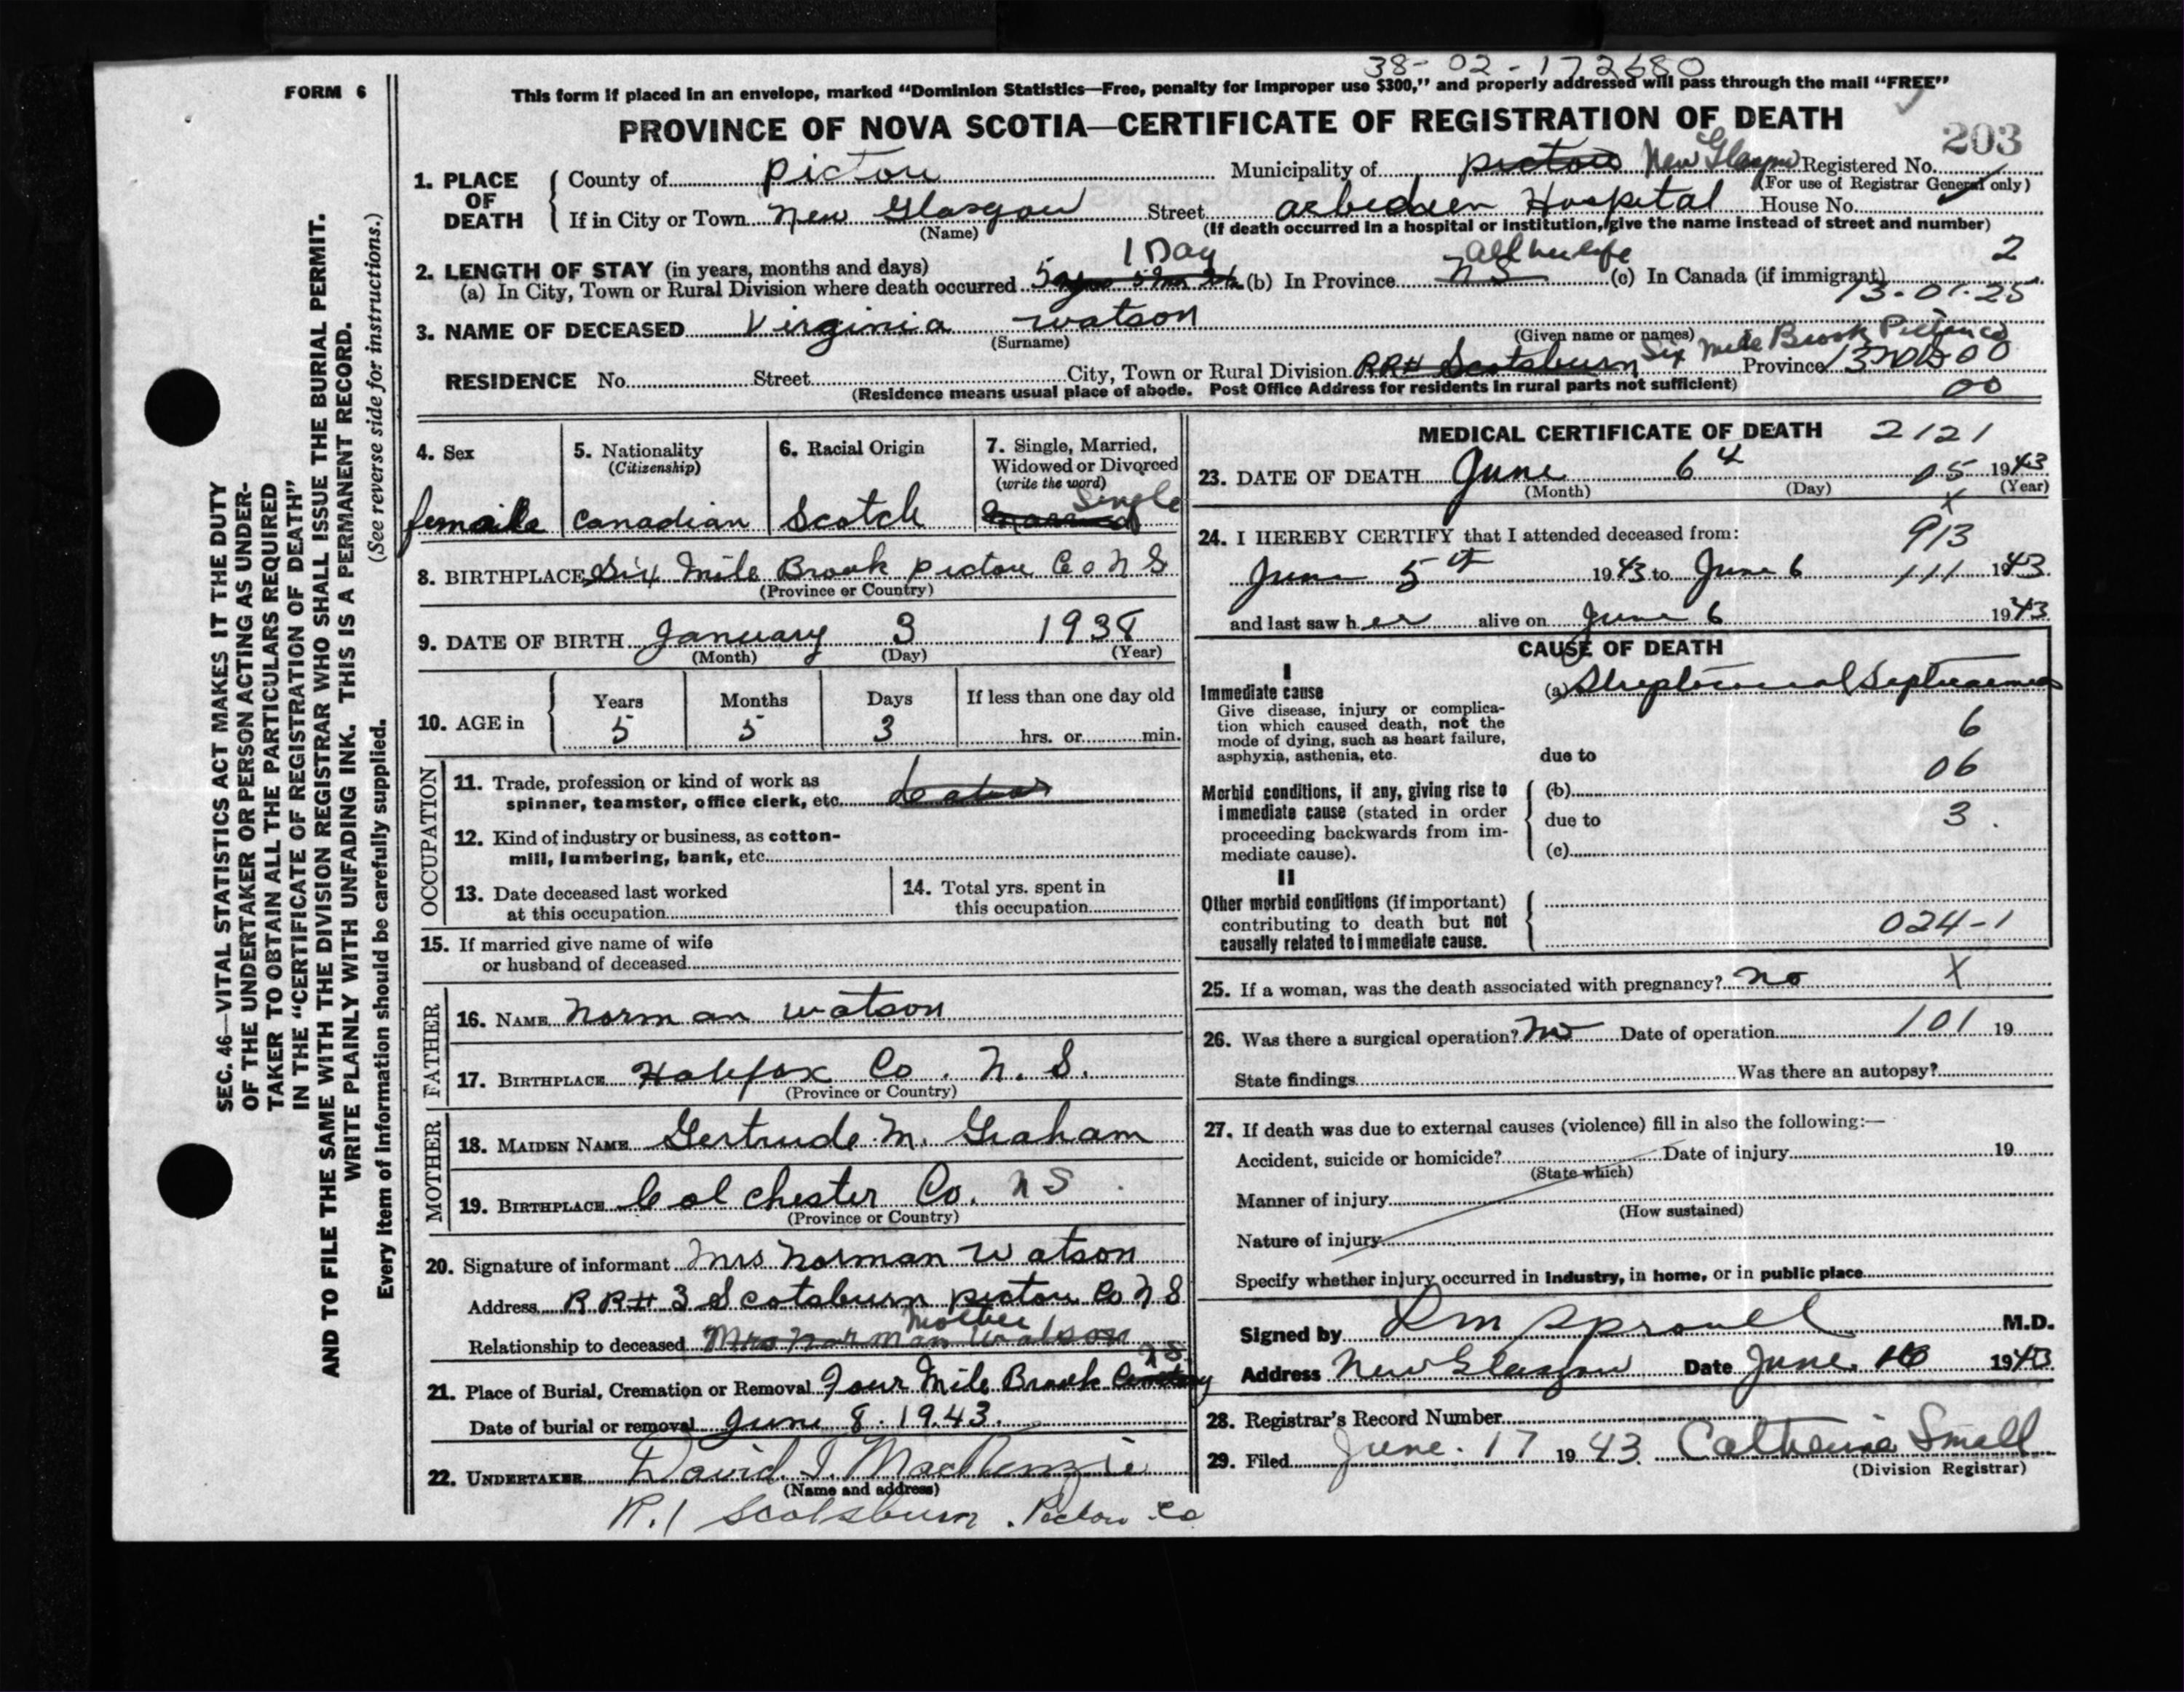 38-02-172680
FORM 6
This form if placed in an envelope, marked "Dominion Statistics—Free, penalty for improper use $300," and properly addressed will pass through the mail "FREE"
PROVINCE OF NOVA SCOTIA—CERTIFICATE OF REGISTRATION OF DEATH
203
1. PLACE OF DEATH
County of Pictou Municipality of Pictou New Glasgow Registered No.
(For use of Registrar General only)
If in City or Town New Glasgow Street Arbedeen Hospital House No.
(Name) (If death occurred in a hospital or institution, give the name instead of street and number)
1 Day all her life 2
2. LENGTH OF STAY (in years, months and days)
(a) In City, Town or Rural Division where death occurred 5 yrs 5 mo (b) In Province N S (c) In Canada (if immigrant)
13-01-25
3. NAME OF DECEASED Virginia Watson
(Surname) (Given name or names)
Six Mile Brook Pictou Co
RESIDENCE No. Street City, Town or Rural Division RR# Scotsburn Province
(Residence means usual place of abode. Post Office Address for residents in rural parts not sufficient)
00
4. Sex
female
5. Nationality
(Citizenship)
Canadian
6. Racial Origin
Scotch
7. Single, Married,
Widowed or Divorced
(write the word)
Single
Married
8. BIRTHPLACE Six Mile Brook Pictou Co N S
(Province or Country)
9. DATE OF BIRTH January 3 1938
(Month) (Day) (Year)
10. AGE in
Years Months Days If less than one day old
5 5 3 hrs. or min.
OCCUPATION
11. Trade, profession or kind of work as
spinner, teamster, office clerk, etc.
12. Kind of industry or business, as cotton-
mill, lumbering, bank, etc.
13. Date deceased last worked
at this occupation
14. Total yrs. spent in
this occupation
15. If married give name of wife
or husband of deceased
FATHER
16. NAME Norman Watson
17. BIRTHPLACE Halifax Co. N. S.
(Province or Country)
MOTHER
18. MAIDEN NAME Gertrude M. Graham
19. BIRTHPLACE Colchester Co. N S
(Province or Country)
20. Signature of informant Mrs Norman Watson
Address RR# 3 Scotsburn Pictou Co N S
Mother
Relationship to deceased Mrs Norman Watson
N S
21. Place of Burial, Cremation or Removal Four Mile Brook Cemetery
Date of burial or removal June 8. 1943.
22. UNDERTAKER David I. MacKenzie
(Name and address)
R.1 Scotsburn. Pictou Co
MEDICAL CERTIFICATE OF DEATH 2121
23. DATE OF DEATH June 6th 05 1943
(Month) (Day) (Year)
X
24. I HEREBY CERTIFY that I attended deceased from: 913
June 5th 1943 to June 6 111 1943
and last saw her alive on June 6 1943
CAUSE OF DEATH
I
Immediate cause
Give disease, injury or complica-
tion which caused death, not the
mode of dying, such as heart failure,
asphyxia, asthenia, etc.
(a) Streptococcal Septicaemia
6
due to
06
Morbid conditions, if any, giving rise to
immediate cause (stated in order
proceeding backwards from im-
mediate cause).
(b)
due to 3
(c)
II
Other morbid conditions (if important)
contributing to death but not
causally related to immediate cause.
024-1
25. If a woman, was the death associated with pregnancy? no X
26. Was there a surgical operation? no Date of operation 101 19
State findings Was there an autopsy?
27. If death was due to external causes (violence) fill in also the following:—
Accident, suicide or homicide? Date of injury 19
(State which)
Manner of injury
(How sustained)
Nature of injury
Specify whether injury occurred in industry, in home, or in public place
Signed by D M Sproull M.D.
Address New Glasgow Date June 16 1943
28. Registrar's Record Number
29. Filed June. 17 1943. Catherine Small
(Division Registrar)
SEC. 46—VITAL STATISTICS ACT MAKES IT THE DUTY
OF THE UNDERTAKER OR PERSON ACTING AS UNDER-
TAKER TO OBTAIN ALL THE PARTICULARS REQUIRED
IN THE "CERTIFICATE OF REGISTRATION OF DEATH"
AND TO FILE THE SAME WITH THE DIVISION REGISTRAR WHO SHALL ISSUE THE BURIAL PERMIT.
WRITE PLAINLY WITH UNFADING INK. THIS IS A PERMANENT RECORD.
(See reverse side for instructions.)
Every item of information should be carefully supplied.